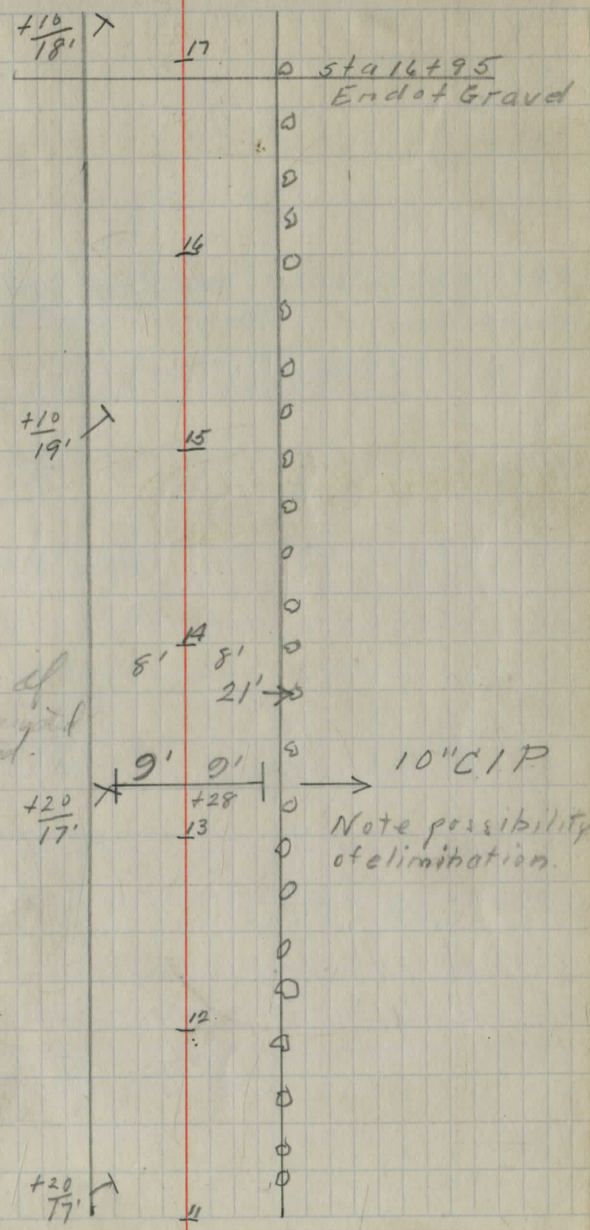 +10
18'
17
sta 16+95
End of Gravel
16
+10
19'
15
14
8' 8'
21'
of
9' 9'
10" C I P
+20
17'
+28
13
Note possibility
of elimination.
12
+20
17'
11